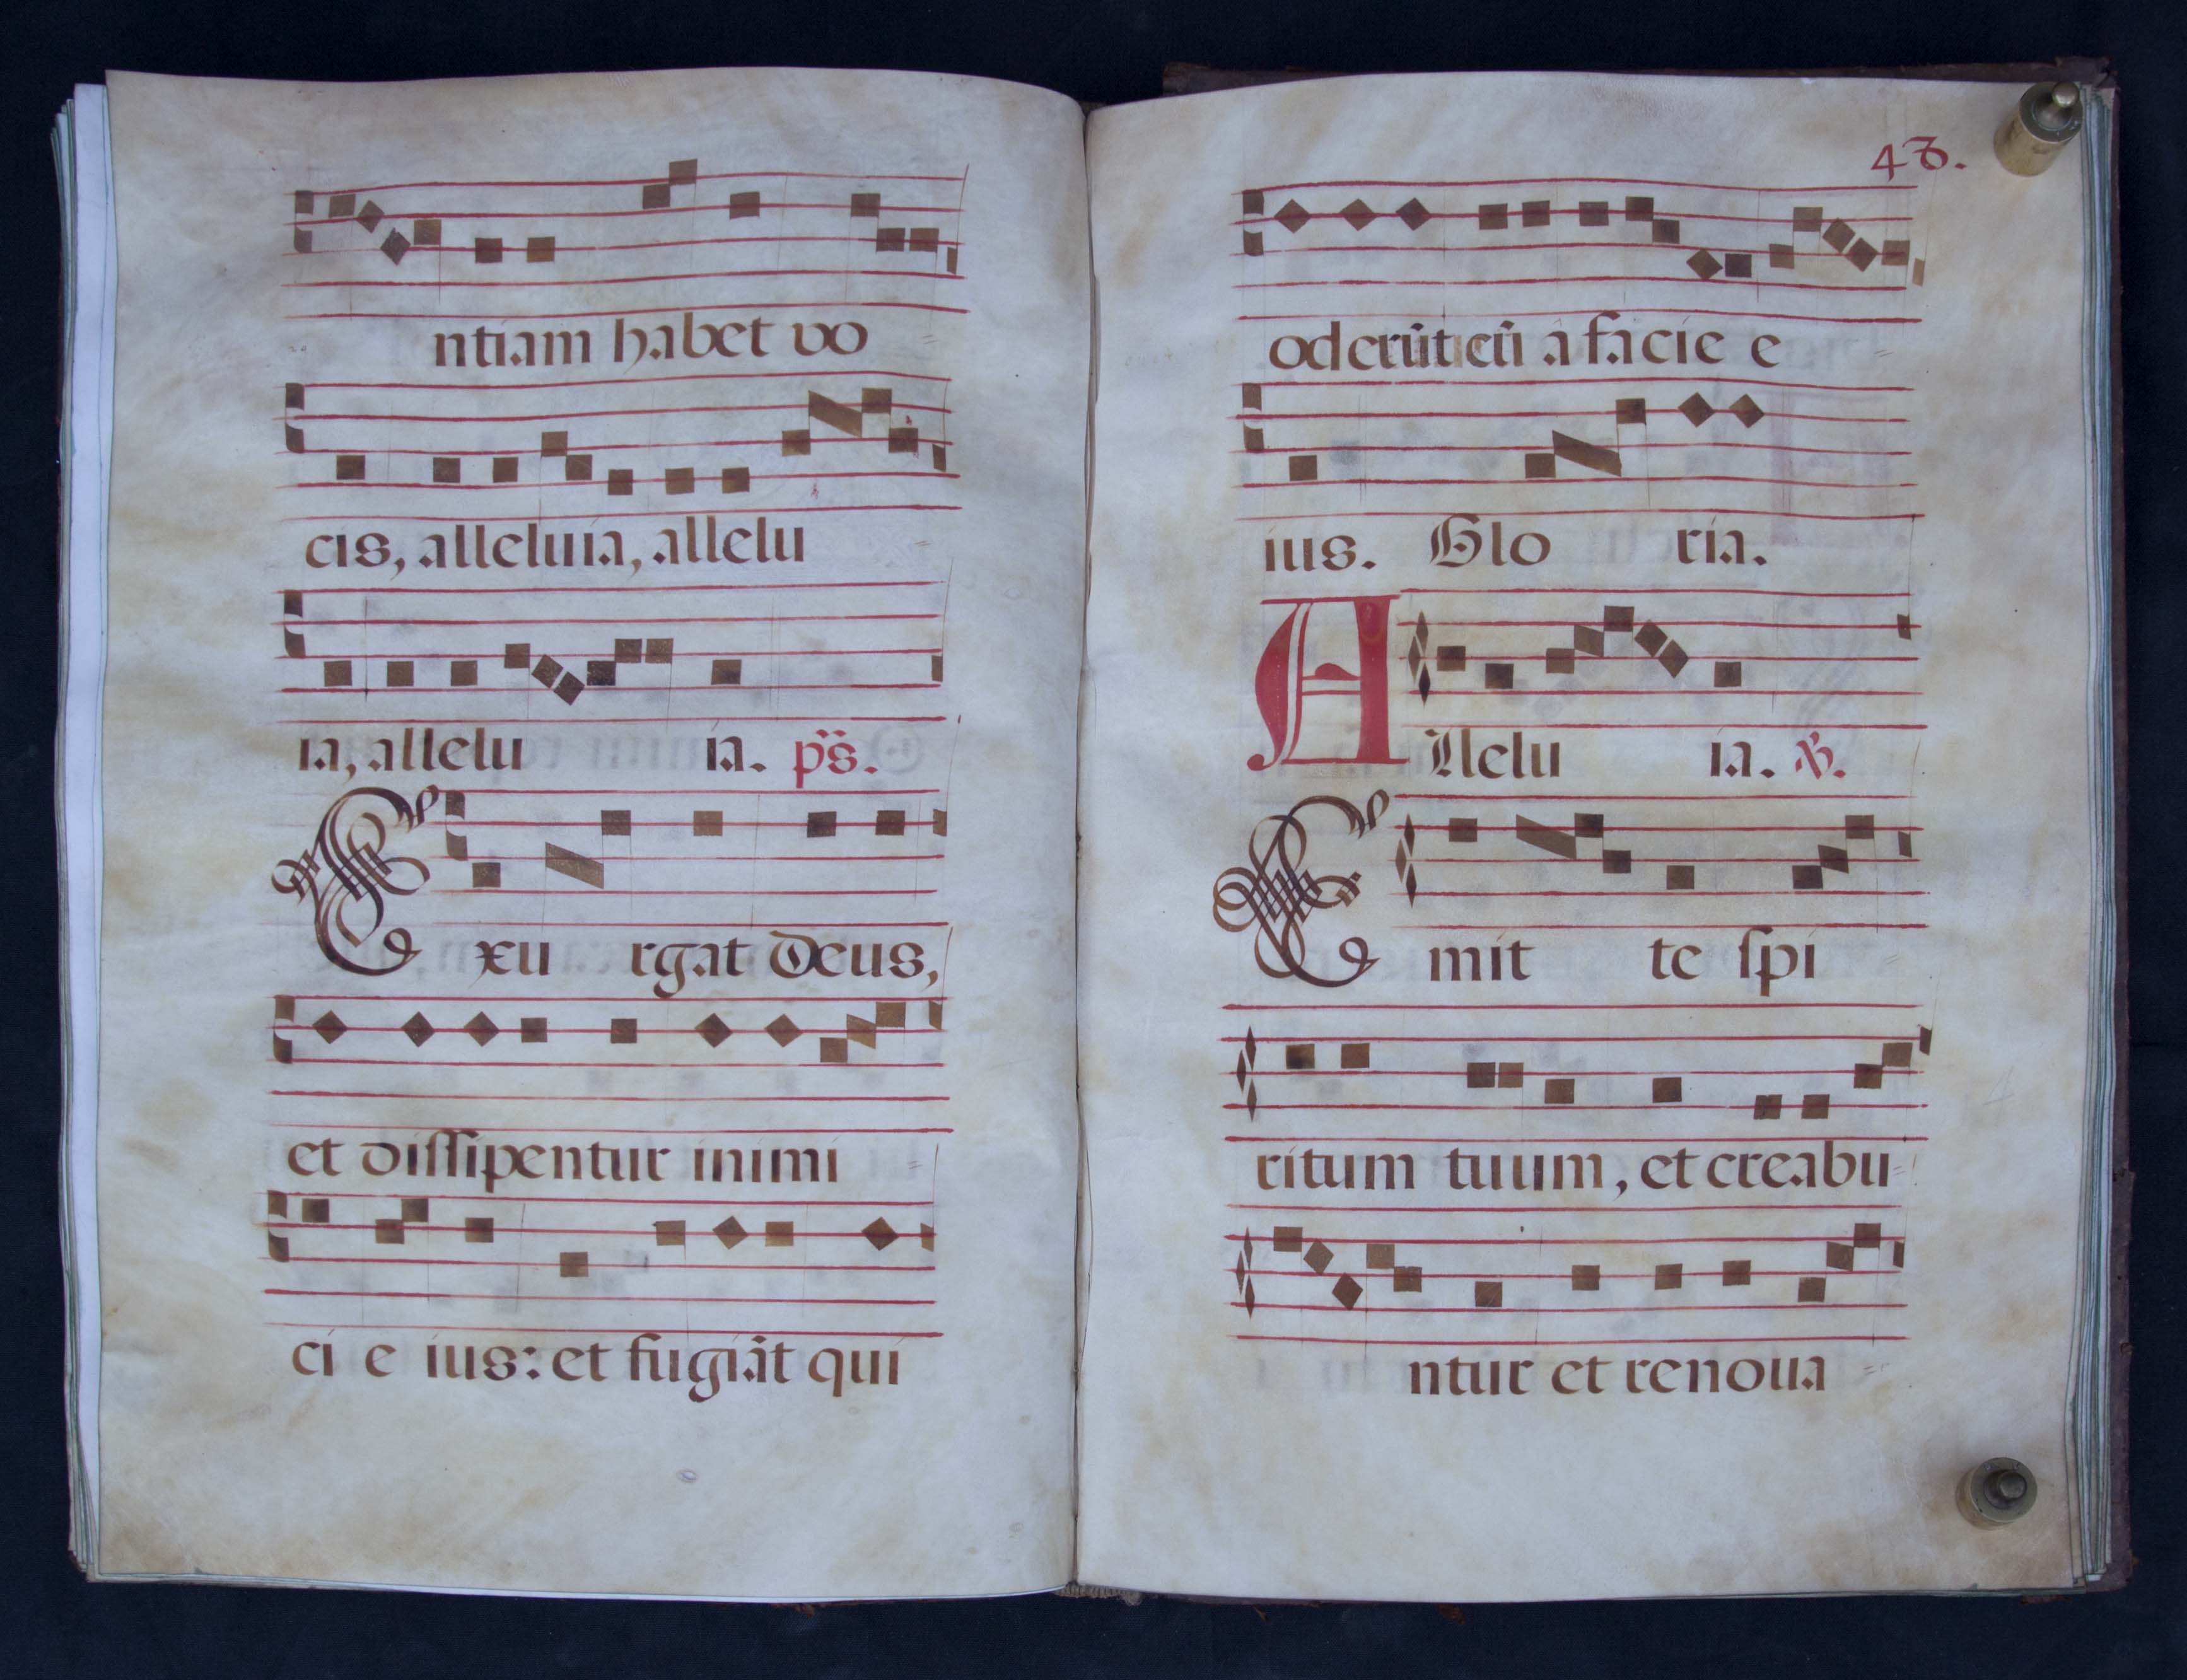 ntiam habet vo
cis, alleluia, allelu
ia, allelu ia. ps.
E xu rgat Deus,
et dissipentur inimi
ci e ius: et fugiãt qui
48.
oderũt eũ a facie e
ius. Glo ria.
A llelu ia. ℣.
E mit te ſpi
ritum tuum, et creabu
ntur et renoua